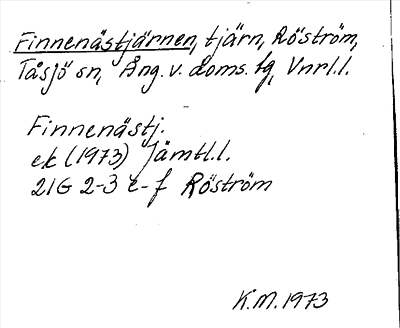 Finnenästjärnen, tjärn, Röström,
Tåsjö sn, Ång. v. doms. tg, Vnrl.l.
Finnenästj.
ek (1973) Jämtl.l.
21G 2-3 e-f Röström
K.M. 1973